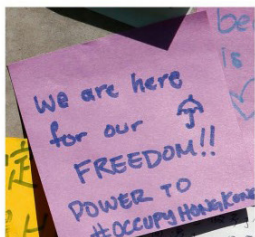 We are here
for our
FREEDOM!!
POWER TO
#OCCUPYHONGKONG
be
is
定